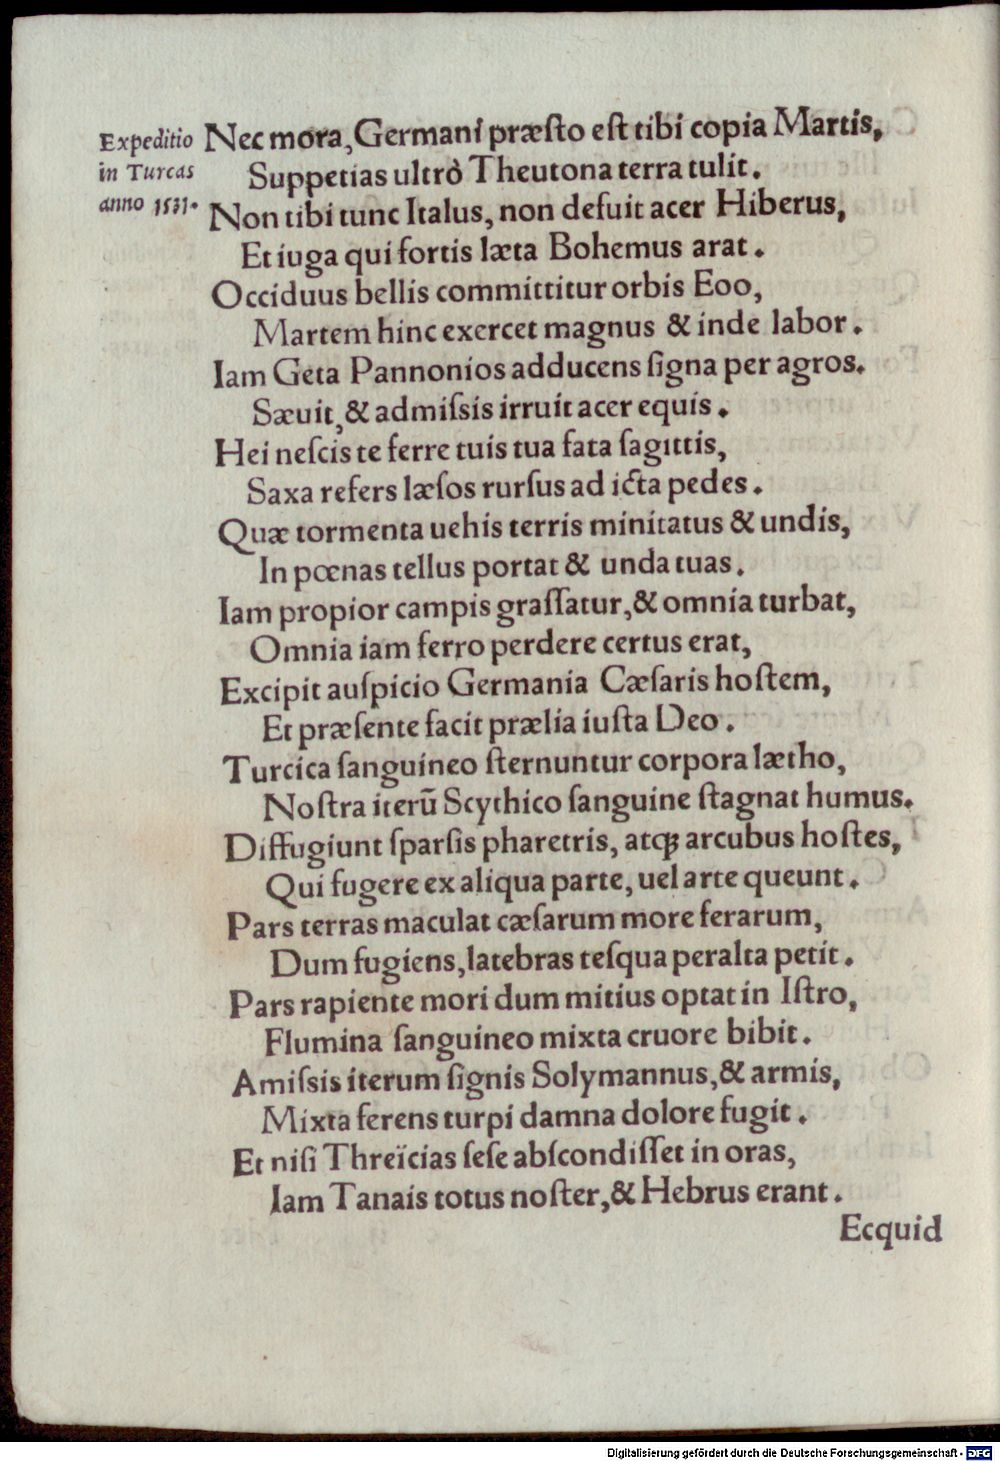 Expeditio
in Turcas
anno 1531.
Nec mora, Germani præſto eſt tibi copia Martis,
Suppetias ultrò Theutona terra tulit.
Non tibi tunc Italus, non defuit acer Hiberus,
Et iuga qui fortis læta Bohemus arat.
Occiduus bellis committitur orbis Eoo,
Martem hinc exercet magnus & inde labor.
Iam Geta Pannonios adducens ſigna per agros.
Sæuit, & admiſsis irruit acer equis.
Hei neſcis te ferre tuis tua fata ſagittis,
Saxa refers læſos rurſus ad icta pedes.
Quæ tormenta uehis terris minitatus & undis,
In pœnas tellus portat & unda tuas.
Iam propior campis graſſatur, & omnia turbat,
Omnia iam ferro perdere certus erat,
Excipit auſpicio Germania Cæſaris hoſtem,
Et præſente facit prælia iuſta Deo.
Turcica ſanguineo ſternuntur corpora lætho,
Noſtra iterũ Scythico ſanguine ſtagnat humus.
Diffugiunt ſparſis pharetris, atqꝫ arcubus hoſtes,
Qui fugere ex aliqua parte, uel arte queunt.
Pars terras maculat cæſarum more ferarum,
Dum fugiens, latebras teſqua per alta petit.
Pars rapiente mori dum mitius optat in Iſtro,
Flumina ſanguineo mixta cruore bibit.
Amiſsis iterum ſignis Solymannus, & armis,
Mixta ferens turpi damna dolore fugit.
Et niſi Threïcias ſeſe abſcondiſſet in oras,
Iam Tanais totus noſter, & Hebrus erant.
Ecquid
Digitalisierung gefördert durch die Deutsche Forschungsgemeinschaft - DFG